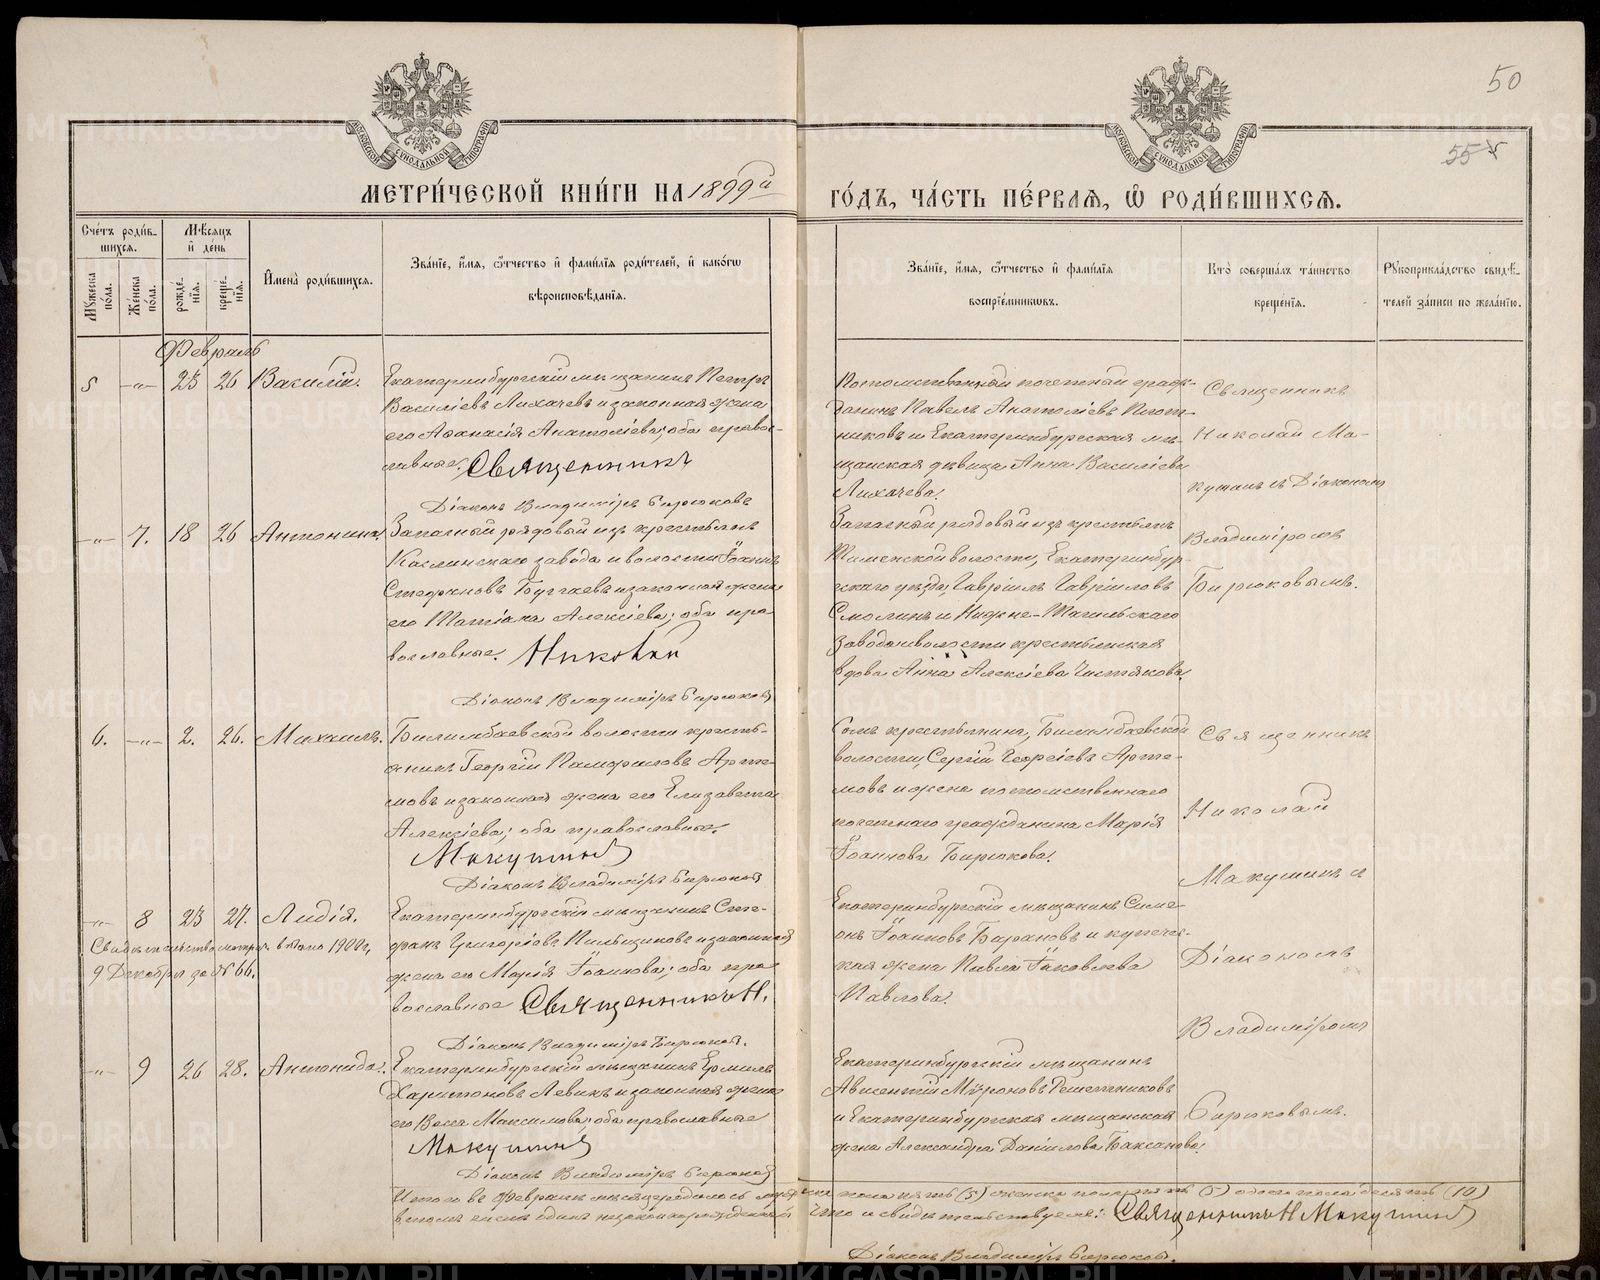 50
55
МОСКОВСКОЙ СѴНОДАЛЬНОЙ ТИПОГРАФІИ
МОСКОВСКОЙ СѴНОДАЛЬНОЙ ТИПОГРАФІИ
МЕТРИ́ЧЕСКОЙ КНИ́ГИ НА 1899й ГО́ДЪ, ЧА́СТЬ ПЕ́РВАѦ, Ѡ҆ РОДИ́ВШИХСѦ.
Сче́тъ роди́вшихся.
Мѣ́сяцъ и҆ де́нь
Мꙋ́жеска по́ла.
Же́нска по́ла.
рожде́нїя.
креще́нїя.
И҆мена̀ роди́вшихся.
Зва́нїе, и҆́мя, ѻ҆́тчество и҆ фами́лїя роди́телей, и҆ како́гѡ
вѣроисповѣ́данїя.
Зва́нїе, и҆́мя, ѻ҆́тчество и҆ фами́лїя
воспрїе́мниковъ.
Кто̀ соверша́лъ та́инство
креще́нїя.
Рꙋкоприкла́дство свидѣ́-
телей за́писи по жела́нїю.
Февраль
5 —"— 25 26 Василій.
Екатеринбургскій мѣщанинъ Петръ
Василіевъ Лихачевъ и законная жена
его Аѳанасія Анатоліева; оба правос-
лавные. Священникъ
Діаконъ Владиміръ Бирюковъ
Потомственный почетный граж-
данинъ Павелъ Анатоліевъ Плот-
никовъ и Екатеринбургская мѣ-
щанская дѣвица Анна Василіева
Лихачева.
Священникъ
Николай Ма-
кушинъ съ Діакономъ
Владиміромъ
Бирюковымъ.
—"— 7. 18 26 Антонина.
Запасный рядовый изъ крестьянъ
Каслинскаго завода и волости Іоаннъ
Стефановъ Бугаевъ и законная жена
его Татіана Алексіева; оба пра-
вославные. Николай
Діаконъ Владиміръ Бирюковъ
Запасный рядовый изъ крестьянъ
волости, Екатеринбур-
скаго уѣзда, Гавріилъ Гавріиловъ
Смолинъ и Нижне-Тагильскаго
завода и волости крестьянская
вдова Анна Алексіева Чистякова.
6. —"— 2. 26. Михаилъ.
Билимбаевской волости кресть-
янинъ Георгій Памфиловъ Арте-
мовъ и законная жена его Елизавета
Алексіева; оба православные.
Макушинъ
Діаконъ Владиміръ Бирюковъ
Сынъ крестьянина, Билимбаевской
волости, Сергій Георгіевъ Арте-
мовъ и жена потомственнаго
почетнаго гражданина Марія
Іоаннова Бирюкова.
Священникъ
Николай
Макушинъ съ
Діакономъ
Владиміромъ
Бирюковымъ.
—"— 8 23 27. Лидія.
Свидѣтельство метрич. выдано 1900 г,
9 Декабря за № 66.
Екатеринбургскій мѣщанинъ Сте-
фанъ Григоріевъ Пильщиковъ и законная
жена его Марія Іоаннова; оба пра-
вославные Священникъ Н.
Діаконъ Владиміръ Бирюковъ.
Екатеринбургскій мѣщанинъ Симе-
онъ Іоанновъ Барановъ и купечес-
кая жена Павла Іаковлева
Павлова.
—"— 9 26 28. Антонида.
Екатеринбургскій мѣщанинъ Ермилъ
Харитоновъ Левинъ и законная жена
его Васса Максимова; оба православные
Макушинъ
Діаконъ Владиміръ Бирюковъ
Екатеринбургскій мѣщанинъ
Авксентій Мѵроновъ Решетниковъ
и Екатеринбургская мѣщанская
жена Александра Даніилова Баксанова.
Итого въ Февралѣ мѣсяцѣ родилось мужеска пола пять (5) женска пола пять (5) обоего пола десять (10)
въ томъ числѣ одинъ незаконнорожденный что и свидѣтельствуемъ: Священникъ Н Макушинъ
Діаконъ Владиміръ Бирюковъ.
METRIKI.GASO-URAL.RU